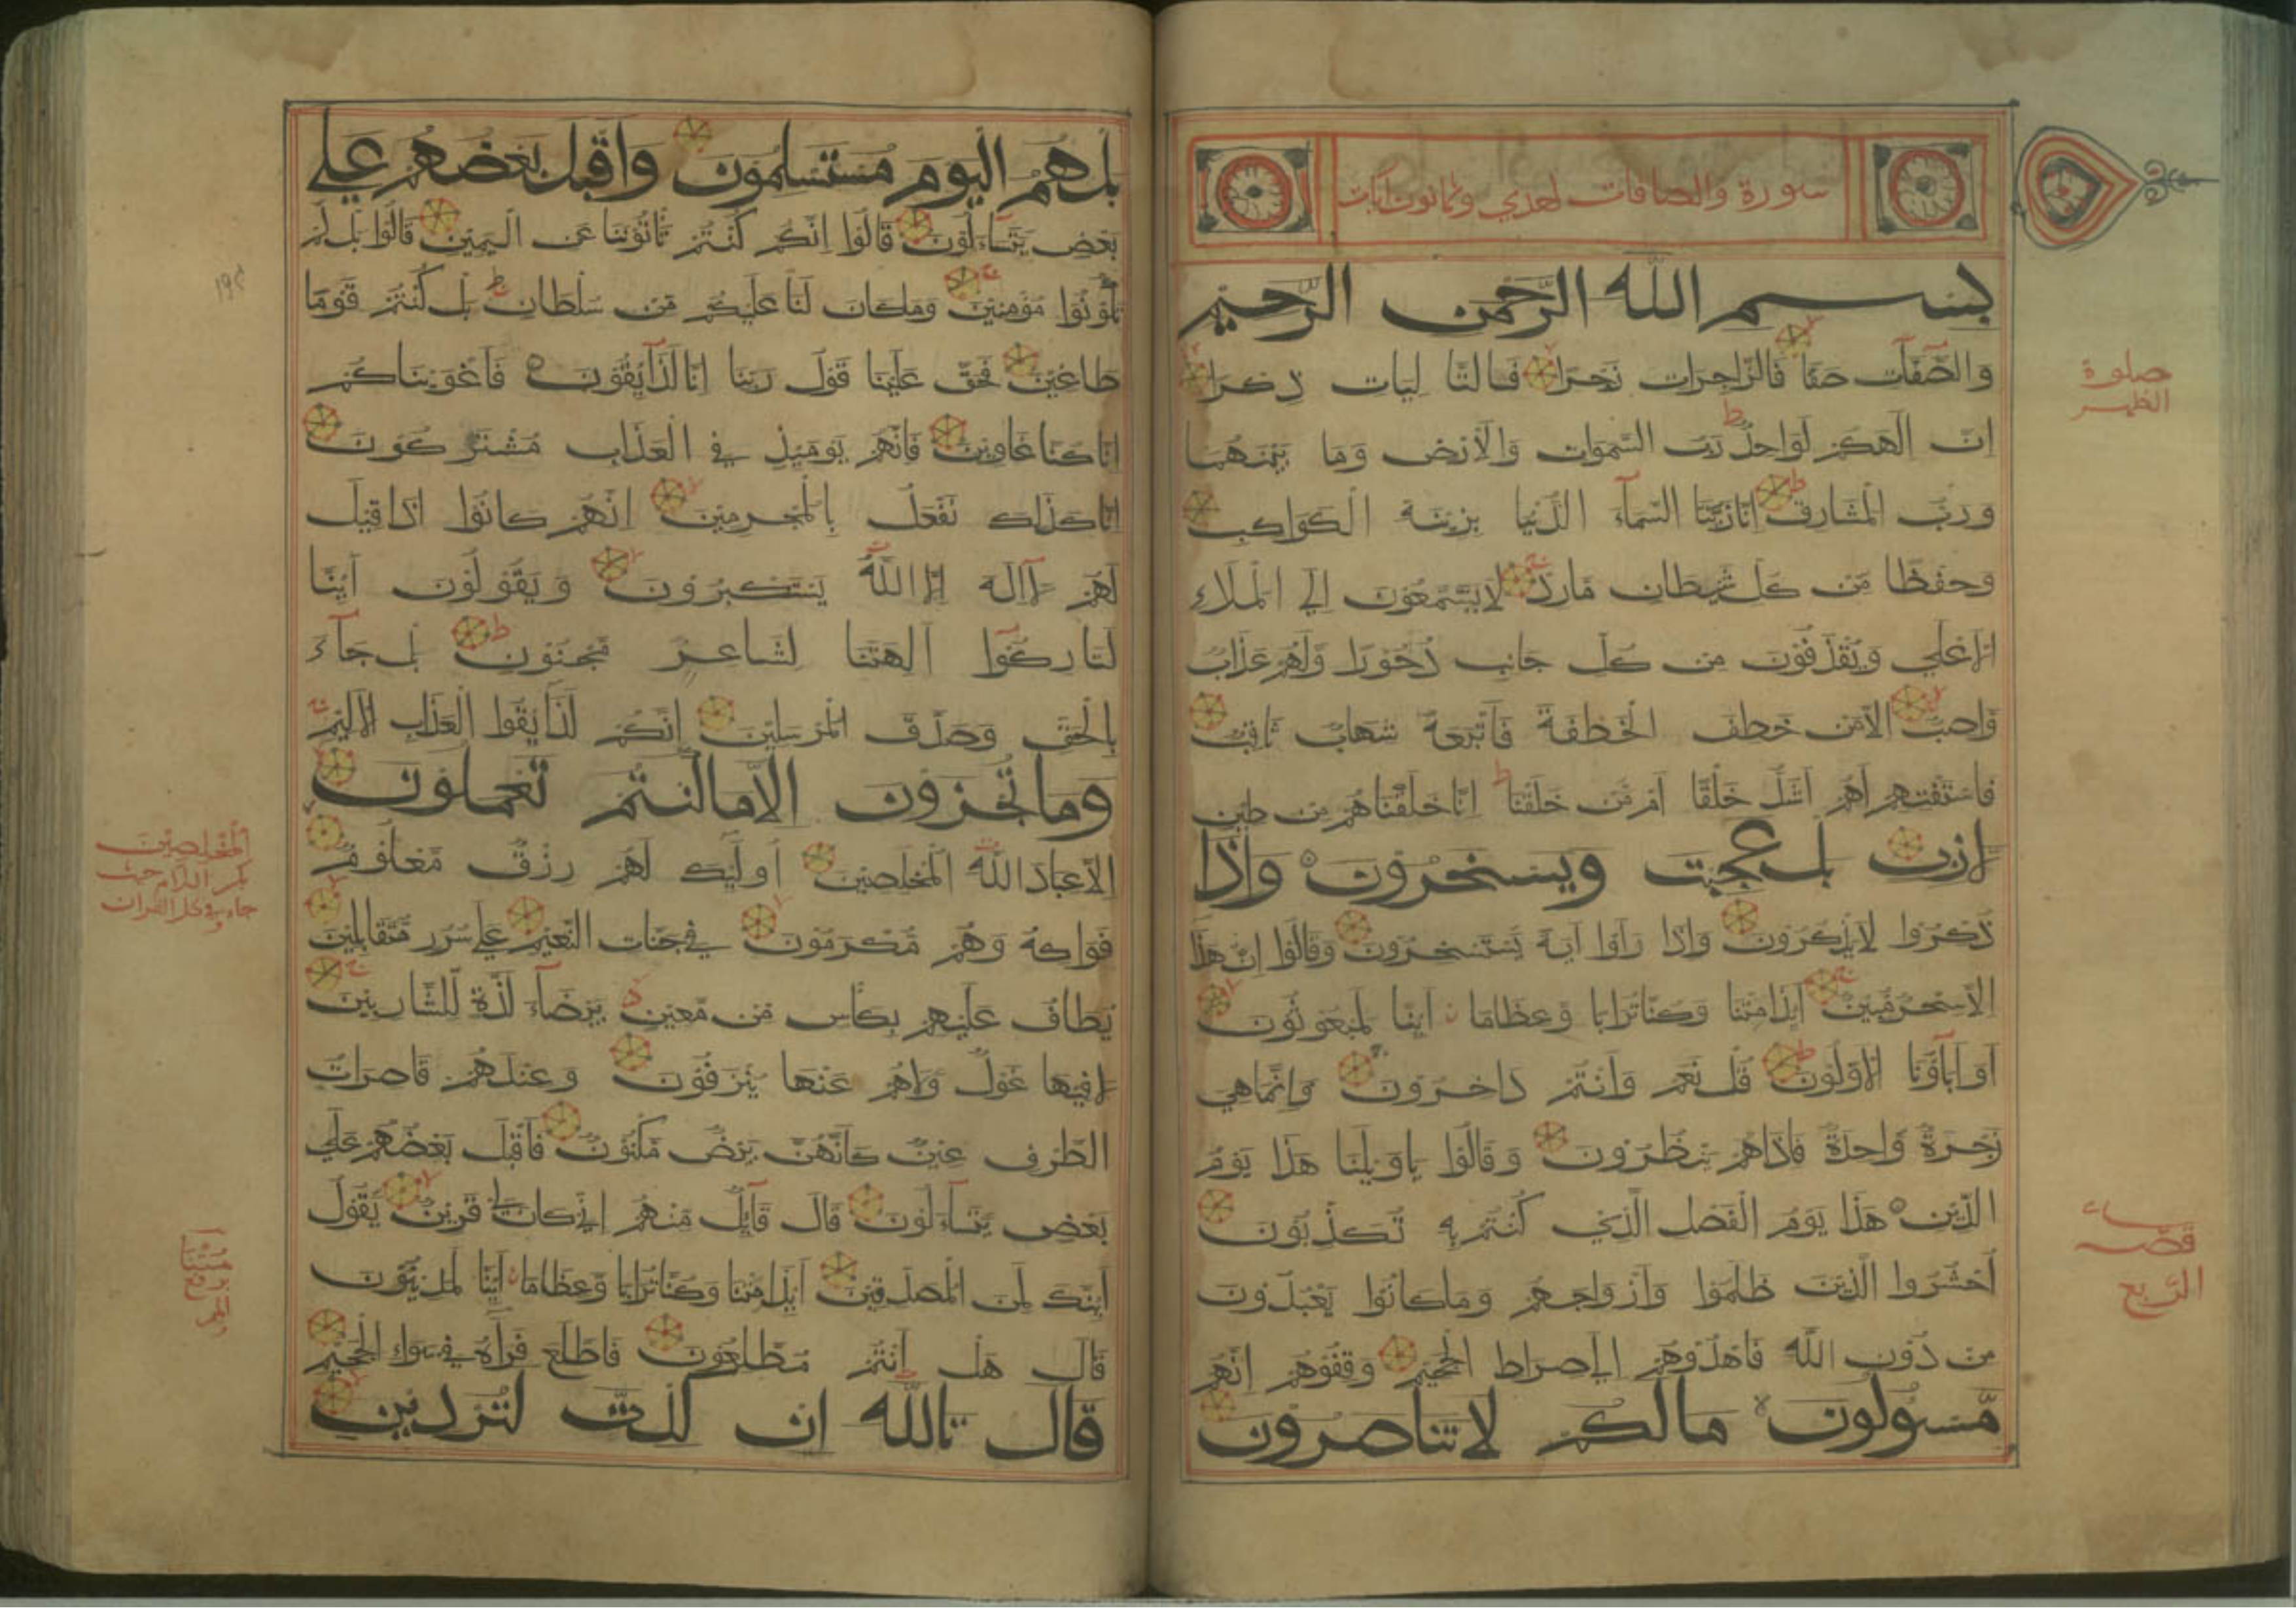 سورة والصافات احدي وثمانون آيات
بسم الله الرحمن الرحيم
والصّٓفّٓات صفّا فالزّاجرات زجرا فالتّاليات ذكرا
انّ الهكم لواحدٌ ربّ السّموات والارض وما بينهما
وربّ المشارق انّا زيّنّا السّمآء الدّنيا بزينة الكواكب
وحفظا مّن كلّ شيطان مّارد لا يسّمّعون الي الملاء
الاعلي ويقذفون من كلّ جانب دحورا ولهم عذاب
وّاصب الّا من خطف الخطفة فاتبعهٗ شهاب ثاقب
فاستفتهم اهم اشدّ خلقا ام مّن خلقنا انّا خلقناهم من طين
لازب بل عجبت ويسخرون واذا
ذكّروا لا يذكرون واذا راوا آية يستسخرون وقالوا ان هذا
الّا سحر مّبين ايذا متنا وكنّا ترابا وّعظاما اينا لمبعوثون
او آبآؤنا الاوّلون قل نعم وانتم داخرون وانّما هي
زجرة وّاحدة فاذا هم ينظرون وقالوا ياويلنا هذا يوم
الدّين هذا يوم الفصل الّذي كنتم به تكذّبون
احشروا الّذين ظلموا وازواجهم وما كانوا يعبدون
من دون اللّه فاهدوهم الي صراط الجحيم وقفوهم انّهم
مّسؤلون ما لكم لا تناصرون
صلوة
الظهر
قصّه
الربع
بل هم اليوم مستسلمون واقبل بعضهم علي
بعض يّتسآءلون قالوا انّكم كنتم تاتوننا عن اليمين قالوا بل لّم
تكونوا مؤمنين وما كان لنا عليكم مّن سلطان بل كنتم قوما
طاغين فحقّ علينا قول ربنا انّا لذآيقون فاغويناكم
انّا كنا غاوين فانّهم يوميذ في العذاب مشتركون
انّا كذلك نفعل بالمجرمين انّهم كانوا اذا قيل
لهم لآ اله الا اللّه يستكبرون ويقولون آينّا
لتاركوا آلهتنا لشاعر مّجنون بل جآء
بالحقّ وصدّق المرسلين انّكم لذآيقوا العذاب الاليم
وما تجزون الّا ما كنتم تعملون
الّا عباد اللّه المخلصين اوليك لهم رزق مّعلوم
فواكه وهم مّكرمون في جنات النّعيم علي سرر مّتقابلين
يطاف عليهم بكأس مّن مّعين بيضآء لذّة لّلشّاربين
لا فيها غول وّلا هم عنها ينزفون وعندهم قاصرات
الطّرف عين كانّهنّ بيض مّكنون فاقبل بعضهم علي
بعض يّتسآءلون قال قآيل مّنهم اني كان لي قرين يّقول
اينّك لمن المصدقين ايذا متنا وكنّا ترابا وّعظاما اينّا لمدينون
قال هل انتم مّطلعون فاطّلع فرآه في سوآء الجحيم
قال تاللّه ان كدتّ لتردين
المخلصين
بكسر اللام حيث
جاء في كل القران
متنا
برفع
الميم